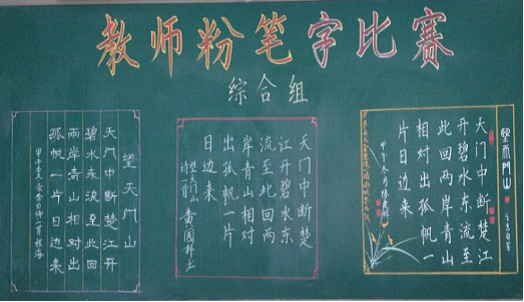 教师粉笔字比赛
综合组
望天门山
天门中断楚江开
碧水东流至此回
两岸青山相对出
孤帆一片日边来
甲午
天门中断楚
江开碧水东
流至此回两
岸青山相对
出孤帆一片
日边来
望天门山
黄国
望天门山
天门中断楚江
开碧水东流至
此回两岸青山
相对出孤帆一
片日边来
甲午